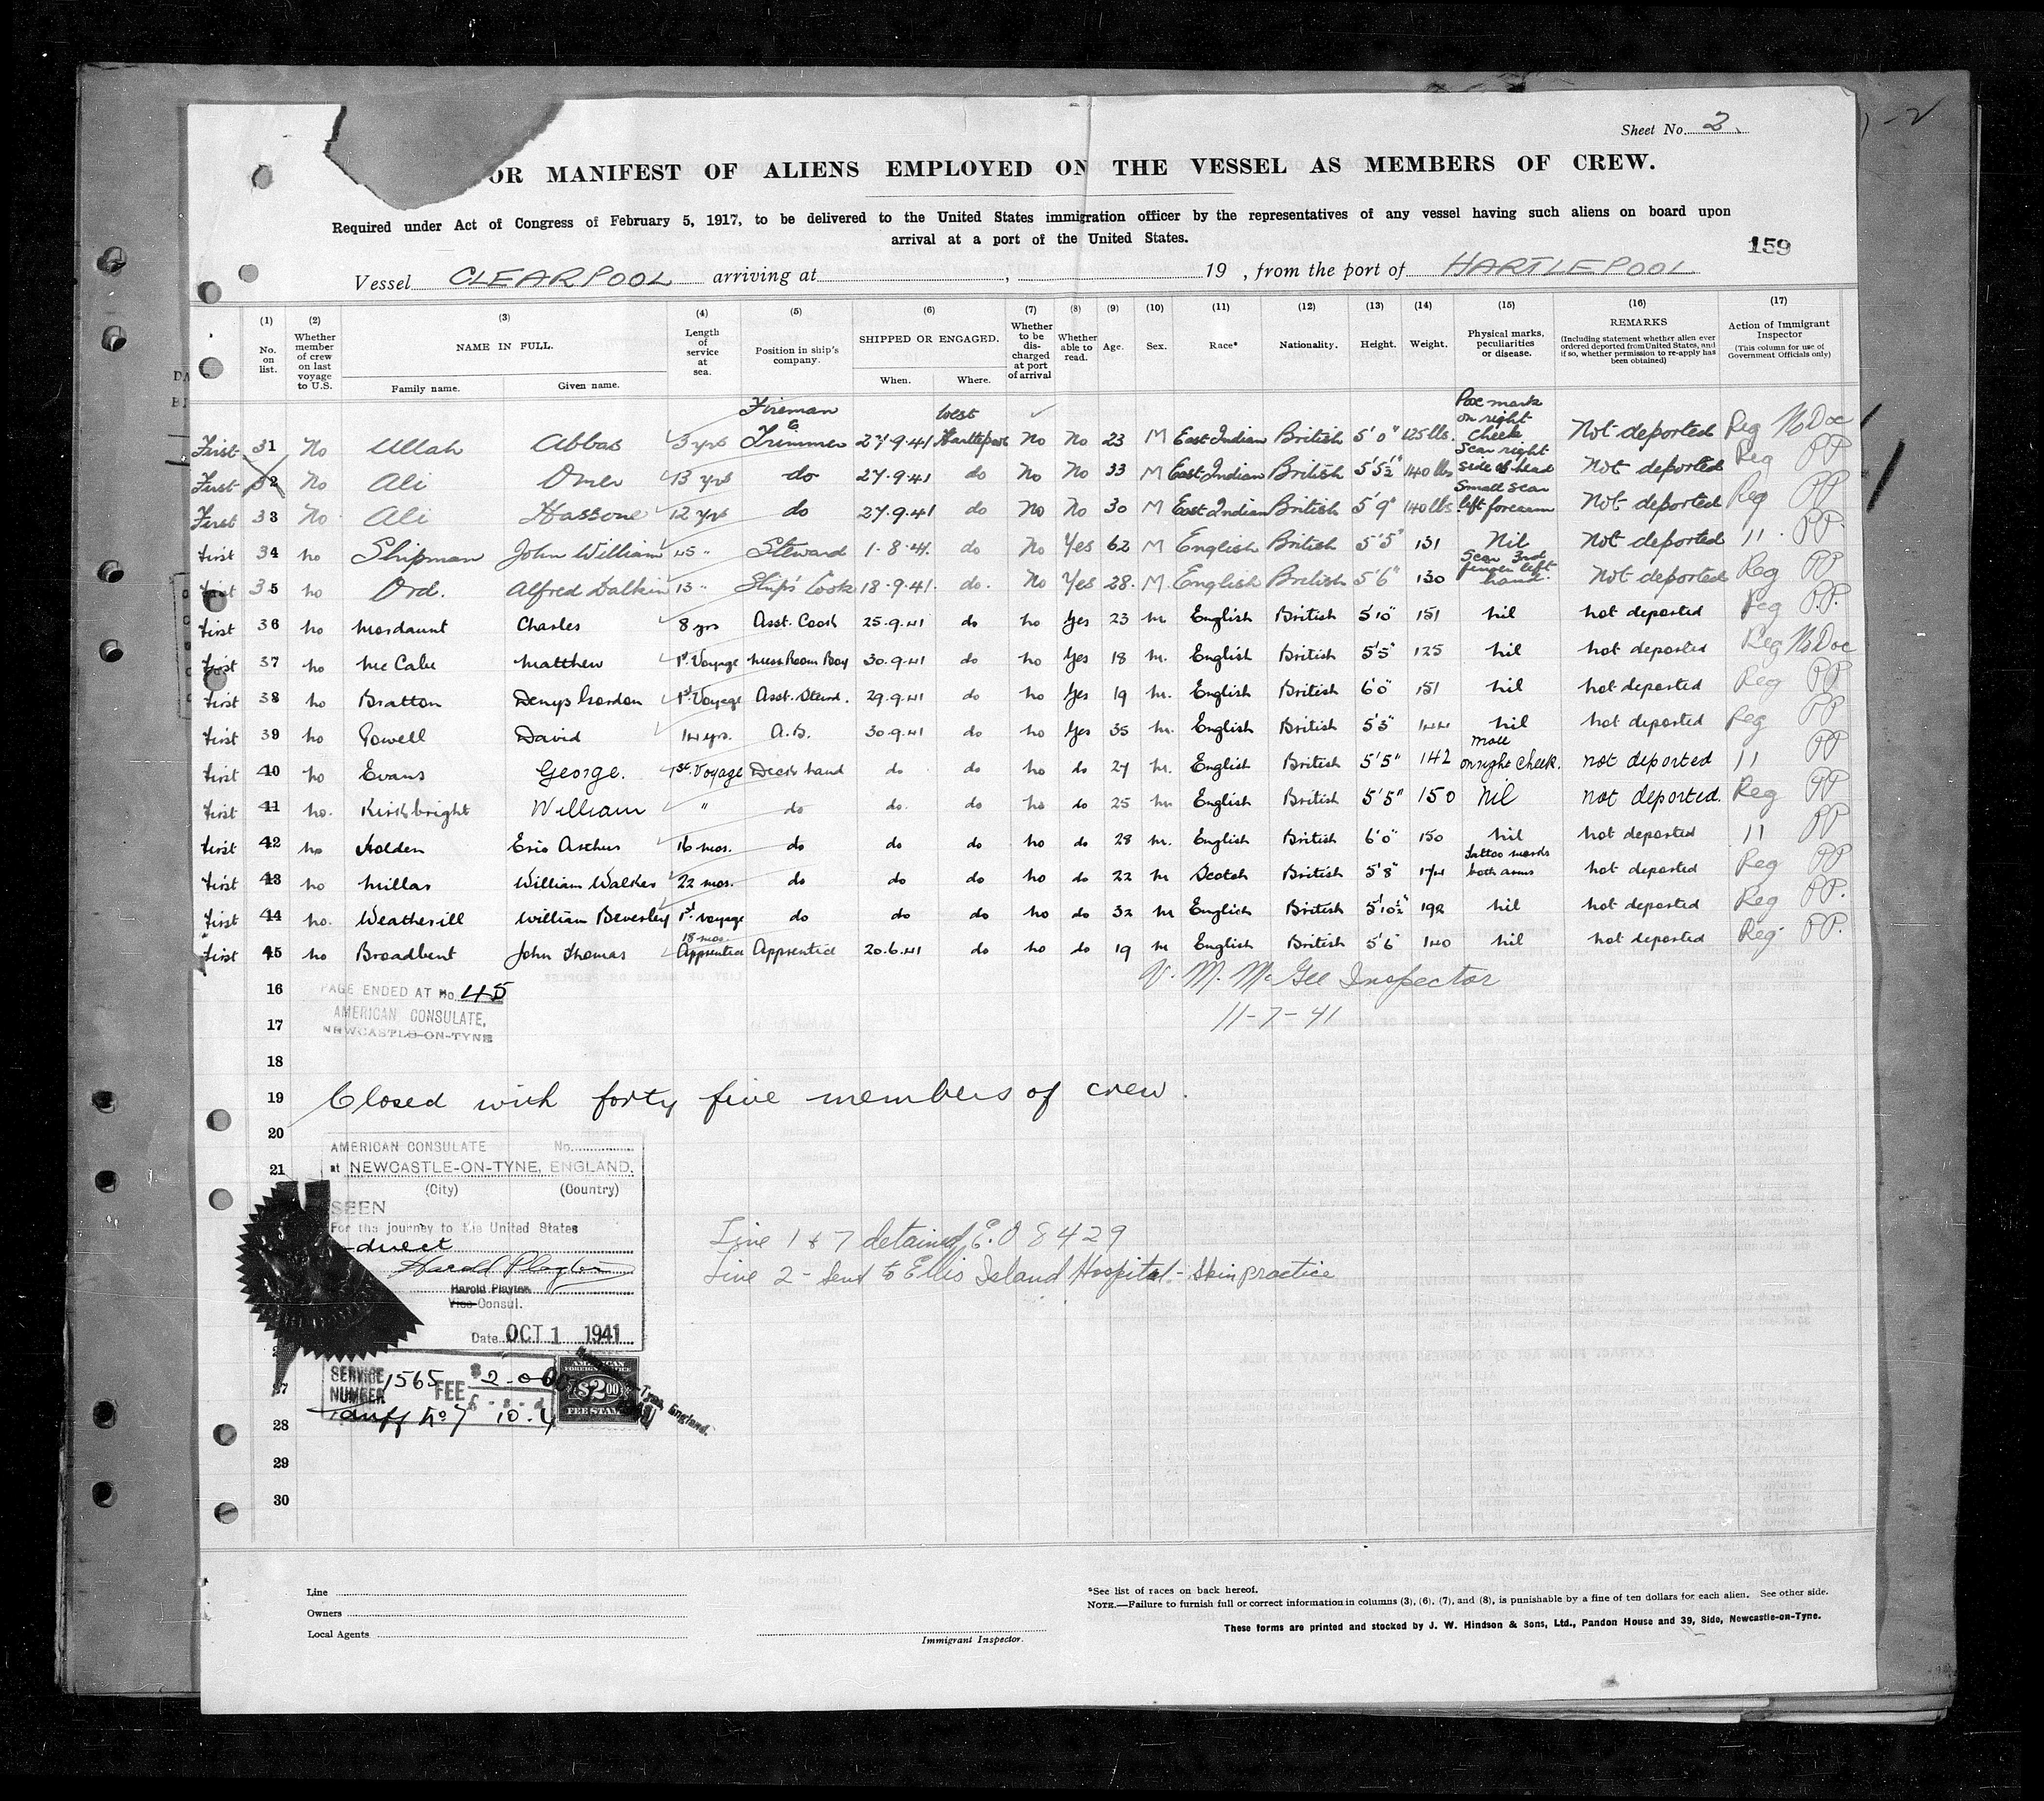 Sheet No. 2.
OR MANIFEST OF ALIENS EMPLOYED ON THE VESSEL AS MEMBERS OF CREW.
Required under Act of Congress of February 5, 1917, to be delivered to the United States immigration officer by the representatives of any vessel having such aliens on board upon
arrival at a port of the United States.
159
Vessel CLEARPOOL arriving at , 19 , from the port of HARTLEPOOL
(1) No. on list.
(2) Whether member of crew on last voyage to U.S.
(3) NAME IN FULL. Family name. Given name.
(4) Length of service at sea.
(5) Position in ship's company.
(6) SHIPPED OR ENGAGED. When. Where.
(7) Whether to be discharged at port of arrival
(8) Whether able to read.
(9) Age.
(10) Sex.
(11) Race*
(12) Nationality.
(13) Height.
(14) Weight.
(15) Physical marks, peculiarities or disease.
(16) REMARKS (Including statement whether alien ever ordered deported from United States, and if so, whether permission to re-apply has been obtained)
(17) Action of Immigrant Inspector (This column for use of Government Officials only)
First 31 No Ullah Abbas 3 yrs Fireman & Trimmer 27.9.41 West Hartlepool No No 23 M East Indian British 5'0" 125 lbs. Pox mark on right cheek Not deported Reg No Doc
First 32 No Ali Omer 13 yrs do 27.9.41 do No No 33 M East Indian British 5'5½" 140 lbs Scar right side of head Not deported Reg PP
First 33 No Ali Hassone 12 yrs do 27.9.41 do No No 30 M East Indian British 5'9" 140 lbs. Small scar left forearm Not deported Reg PP
First 34 no Shipman John William 45 " Steward 1.8.41. do No Yes 62 M English British 5'5" 131 Nil Not deported 11 PP
First 35 no Ord. Alfred Dalkin 13 " Ship's Cook 18.9.41. do. No Yes 28. M. English British 5'6" 130 Scar 3rd finger left hand. Not deported Reg PP
First 36 no Mordaunt Charles 8 yrs Asst. Cook 25.9.41 do no Yes 23 m. English British 5'10" 151 nil not deported Reg P.P.
First 37 no McCabe Matthew 1st Voyage Mess Room Boy 30.9.41 do no Yes 18 m. English British 5'5" 125 nil not deported Reg No Doc
First 38 no Bratton Denys Gordon 1st Voyage Asst. Steward. 29.9.41 do no Yes 19 m. English British 6'0" 151 nil not deported Reg PP
First 39 no Powell David 14 yrs. A.B. 30.9.41 do no Yes 35 m. English British 5'5" 144 nil not deported Reg PP
First 40 no Evans George. 1st Voyage Deck hand do do no do 27 m. English British 5'5" 142 Mole on right cheek. not deported 11 PP
First 41 no. Kirkbright William " do do. do no do 25 m English British 5'5" 150 Nil not deported. Reg PP
First 42 no Holden Eric Arthur 16 mos. do do do no do 28 m. English British 6'0" 150 nil not deported 11 PP
First 43 no Millar William Walker 22 mos. do do do no do 22 m Scotch British 5'8" 174 tattoo marks both arms not deported Reg PP
First 44 no. Weatherill William Beverley 1st voyage do do do no do 32 m English British 5'10½" 192 nil not deported Reg PP.
First 45 no Broadbent John Thomas 18 mos. Apprentice Apprentice 20.6.41 do no do 19 m English British 5'6" 140 nil not deported Reg. PP.
V. M. McGee Inspector
11-7-41
16 PAGE ENDED AT No. 45
AMERICAN CONSULATE,
17 NEWCASTLE-ON-TYNE
18
19 Closed with forty five members of crew.
20
AMERICAN CONSULATE No.
21 at NEWCASTLE-ON-TYNE, ENGLAND.
(City) (Country)
SEEN
For the journey to the United States
direct
Harold Playter
Harold Playter
Vice Consul.
Date OCT 1 1941
Line 1 & 7 detained E.O 8429
Line 2 - Sent to Ellis Island Hospital - Skin practice
SERVICE NUMBER 1565 FEE $2.00
Tariff No 7 10.4
AMERICAN FOREIGN SERVICE $2.00 FEE STAMP
27
28
29
30
Line
Owners
Local Agents
Immigrant Inspector.
*See list of races on back hereof.
NOTE.—Failure to furnish full or correct information in columns (3), (6), (7), and (8), is punishable by a fine of ten dollars for each alien. See other side.
These forms are printed and stocked by J. W. Hindson & Sons, Ltd., Pandon House and 39, Side, Newcastle-on-Tyne.